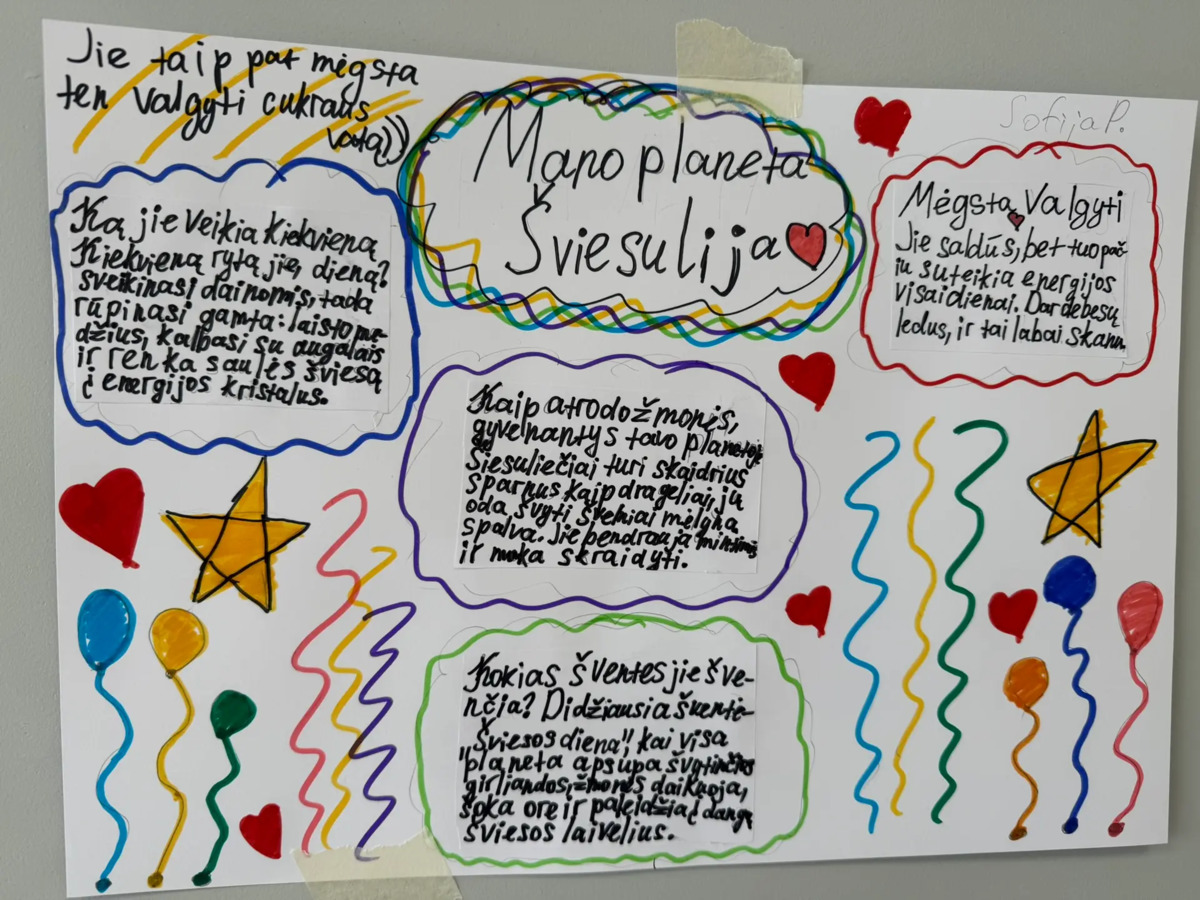 Jie taip pat mėgsta
ten valgyti cukraus
vatą))
Mano planeta
Šviesulija
Sofija P.
Ką jie veikia kiekvieną
Kiekvieną rytą jie, dieną?
sveikinasi dainomis, tada
rūpinasi gamta: laisto me-
džius, kalbasi su augalais
ir renka saulės šviesą
į energijos kristalus.
Mėgsta Valgyti
Jie saldūs, bet tuo pač-
iu suteikia energijos
visai dienai. Dar debesų
ledus, ir tai labai skanu.
Kaip atrodo žmonės,
gyvenantys tavo planetoje
Šiesuliečiai turi skaidrius
sparnus kaip drageliai, jų
oda švyti švelniai mėlyna
spalva. Jie bendrauja mintimis
ir moka skraidyti.
Kokias šventes jie šve-
nčia? Didžiausia šventė-
"Šviesos diena", kai visa
planeta apsupa švytinčios
girliandos, žmonės dainuoja,
šoka ore ir paleidžia į dangų
šviesos laivelius.